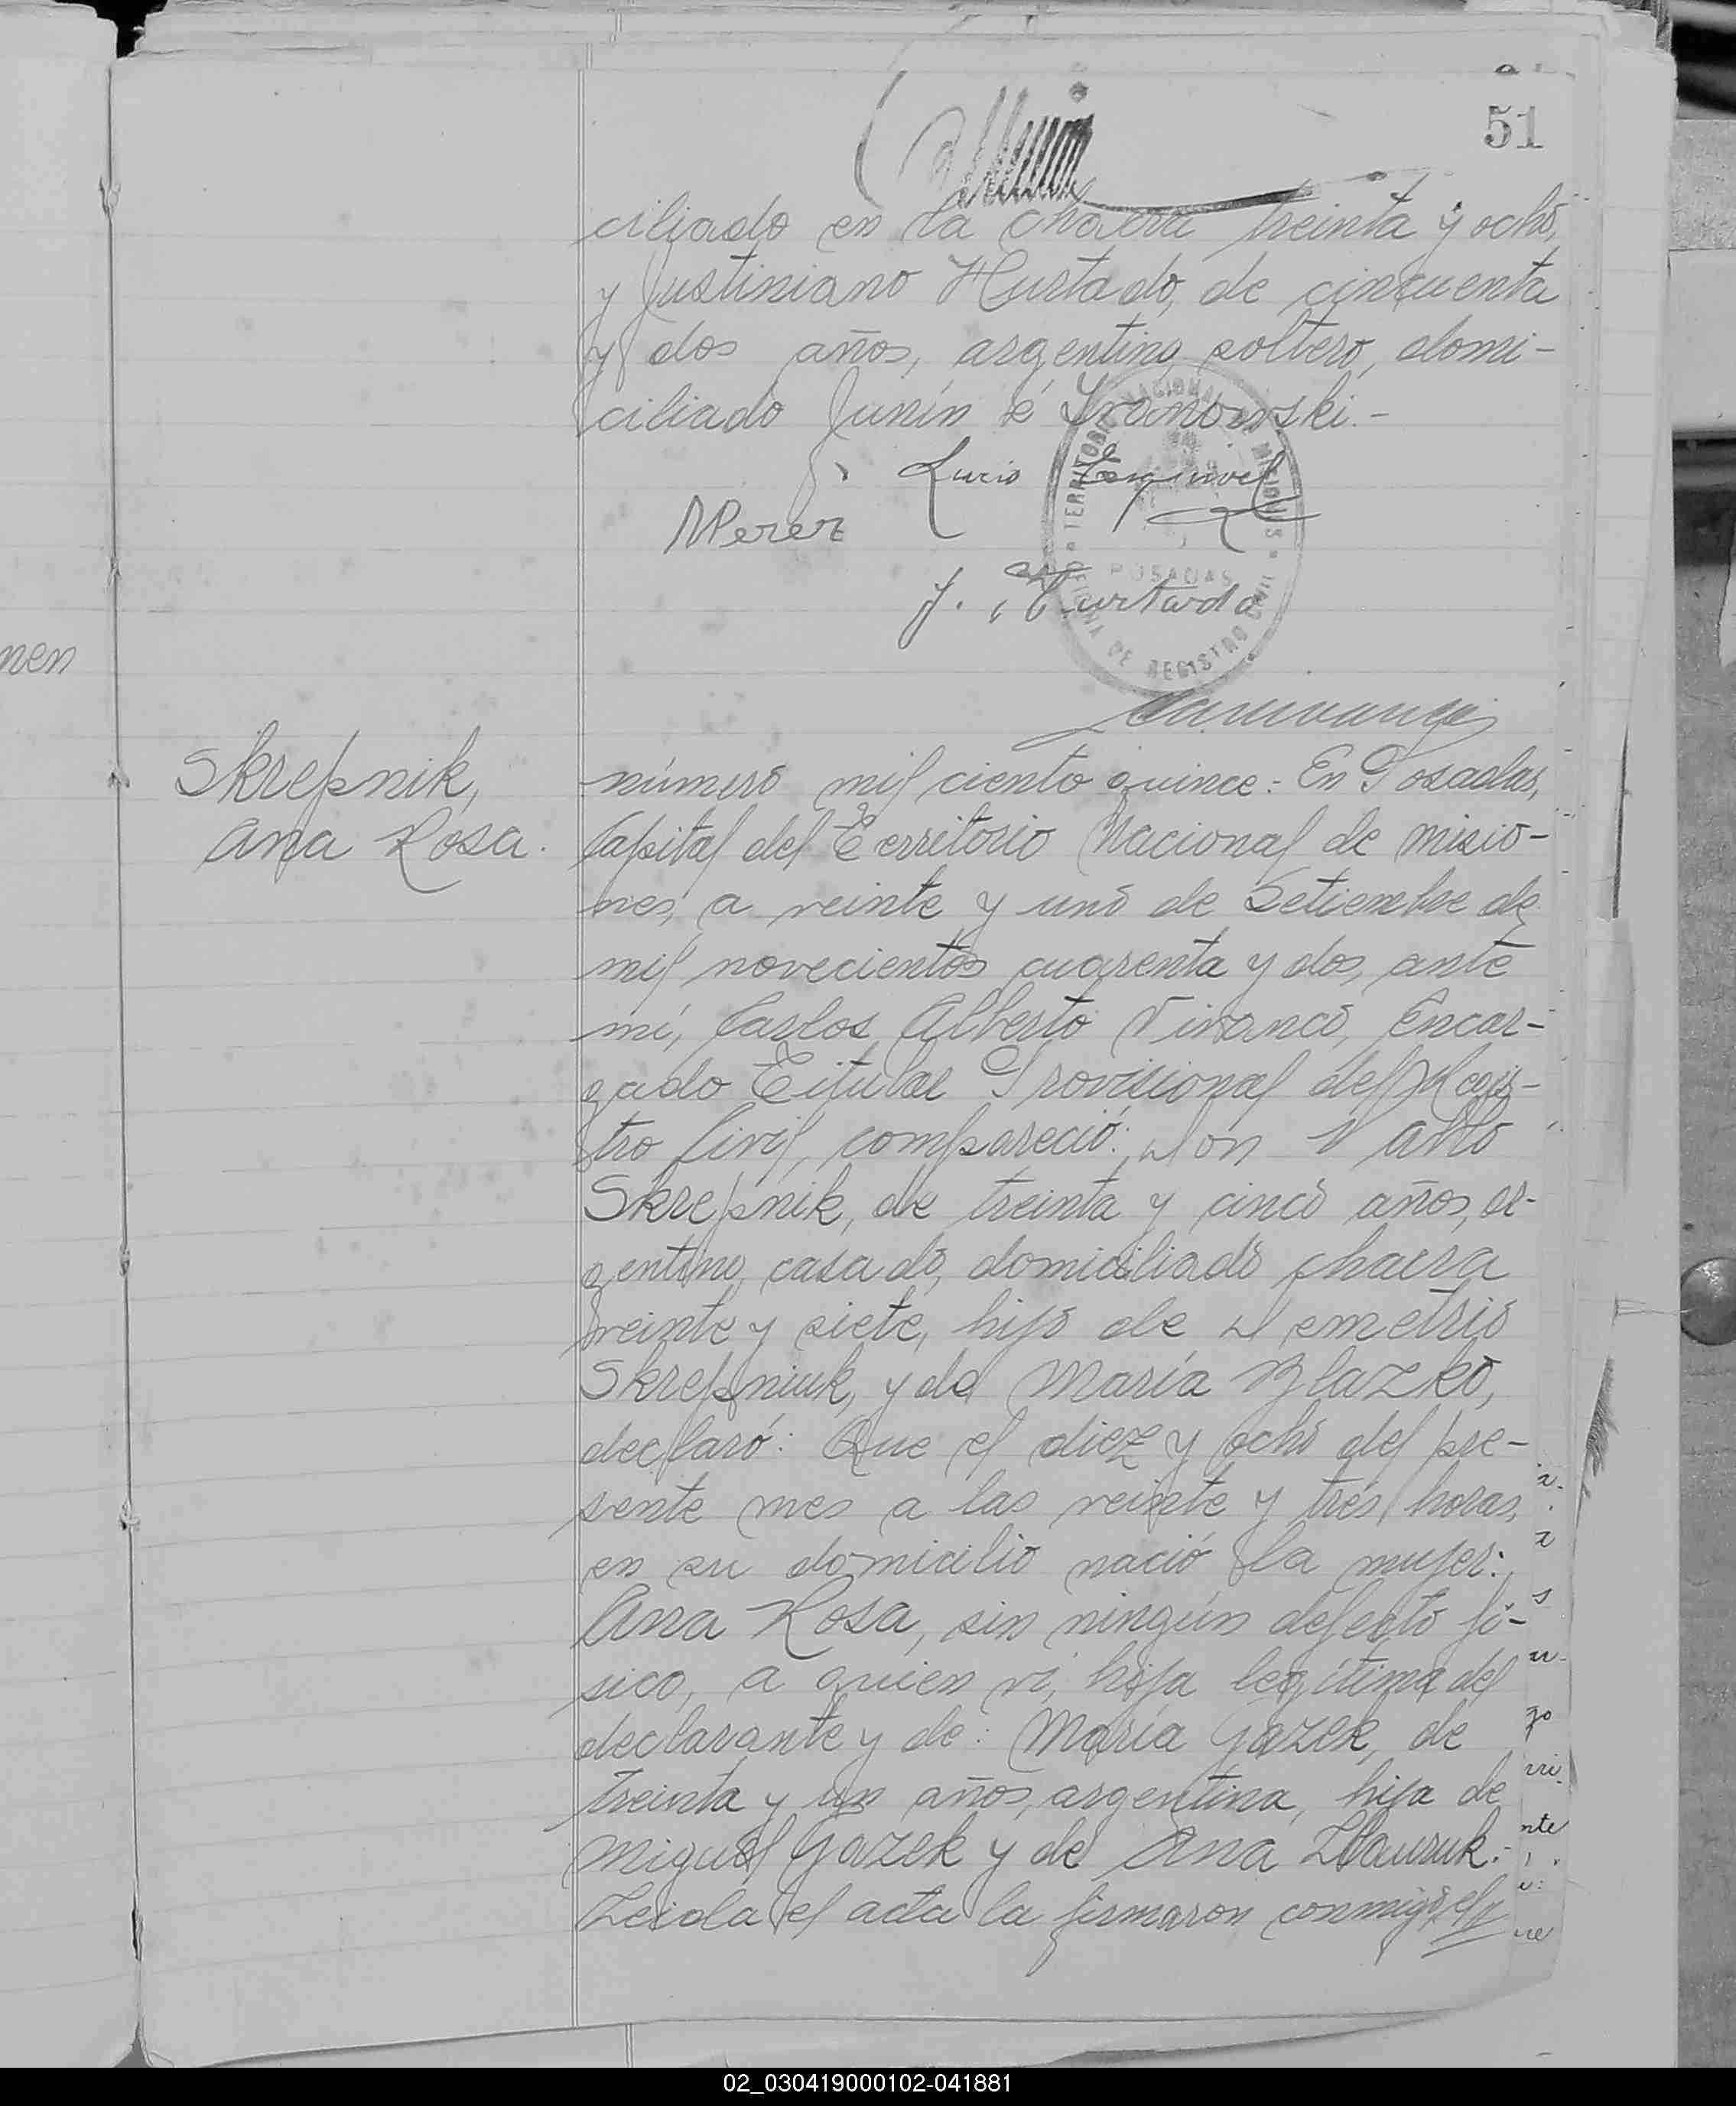 51
ciliado en la chacra treinta y ocho,
y Justiniano Hurtado, de cincuenta
y dos años, argentino, soltero, domi-
ciliado Junín é Yranowski.-
Lucio Esquivel
MPerez
TERRITORIO NACIONAL DE MISIONES
POSADAS
OFICINA DE REGISTRO CIVIL
J. Hurtado
men
Skrepnik,
Ana Rosa.
número mil ciento quince: En Posadas,
Capital del Territorio Nacional de Misio-
nes, a veinte y uno de Setiembre de
mil novecientos cuarenta y dos, ante
mí, Carlos Alberto Vivanco, Encar-
gado Titular Provisional del Regis-
tro Civil, compareció: Don Pablo
Skrepnik, de treinta y cinco años, ar-
gentino, casado, domiciliado chacra
veinte y siete, hijo de Demetrio
Skrepniuk, y de María Blazko,
declaró: Que el diez y ocho del pre-
sente mes a las veinte y tres horas,
en su domicilio nació la mujer:
Ana Rosa, sin ningún defecto fí-
sico, a quien ví, hija legítima del
declarante y de: María Gazek, de
treinta y un años, argentina, hija de
Miguel Gazek y de Ana
Leida el acta la firmaron conmigo, el
02_030419000102-041881